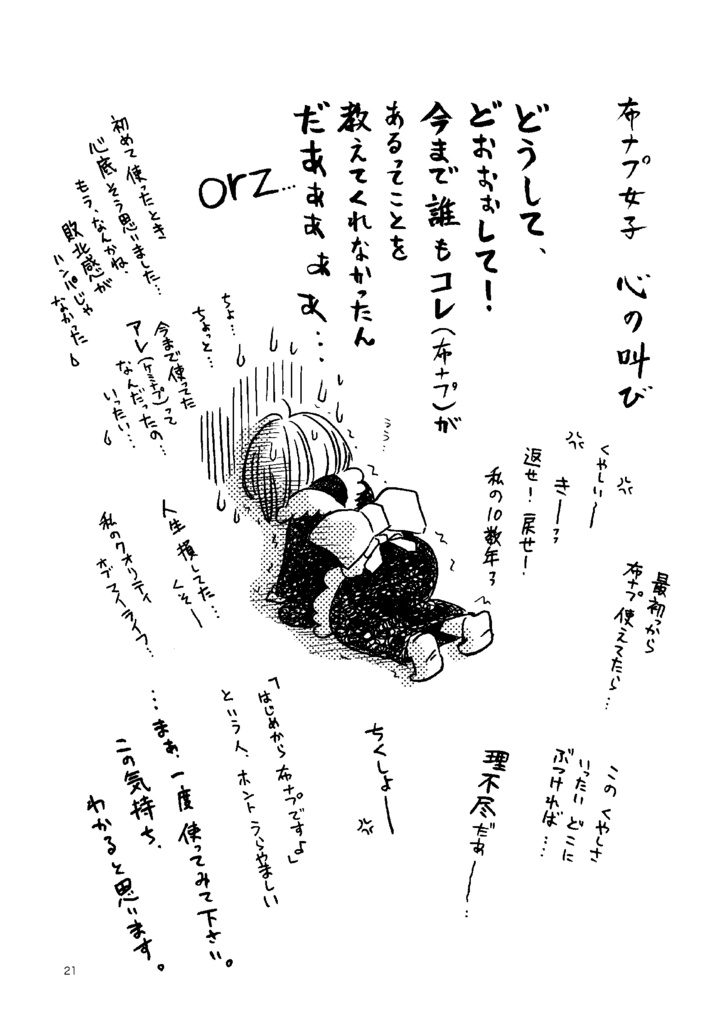 布ナプ女子 心の叫び
どうして、
どぉぉぉして!
今まで誰もコレ(布ナプ)が
あるってことを
教えてくれなかったん
だあぁぁぁぁ…
orz…
初めて使ったとき
心底そう思いました…
もう、なんかね、
敗北感が
ハンパじゃ
なかった
ちょ…
ちょっと…
今まで使ってた
アレ(ケミナプ)って
なんだったの…
いったい…
うう…
くやしい〜
きーっ
返せ!戻せ!
私の10数年っ
最初っから
布ナプ使えてたら…
人生損してた…
くそー
私のクオリティ
オブマイライフ…
このくやしさ
いったいどこに
ぶつければ…
理不尽だぁー…
ちくしょー
「はじめから布ナプですよ」
という人、ホントうらやましい
…まぁ、一度使ってみて下さい。
この気持ち、
わかると思います。
21